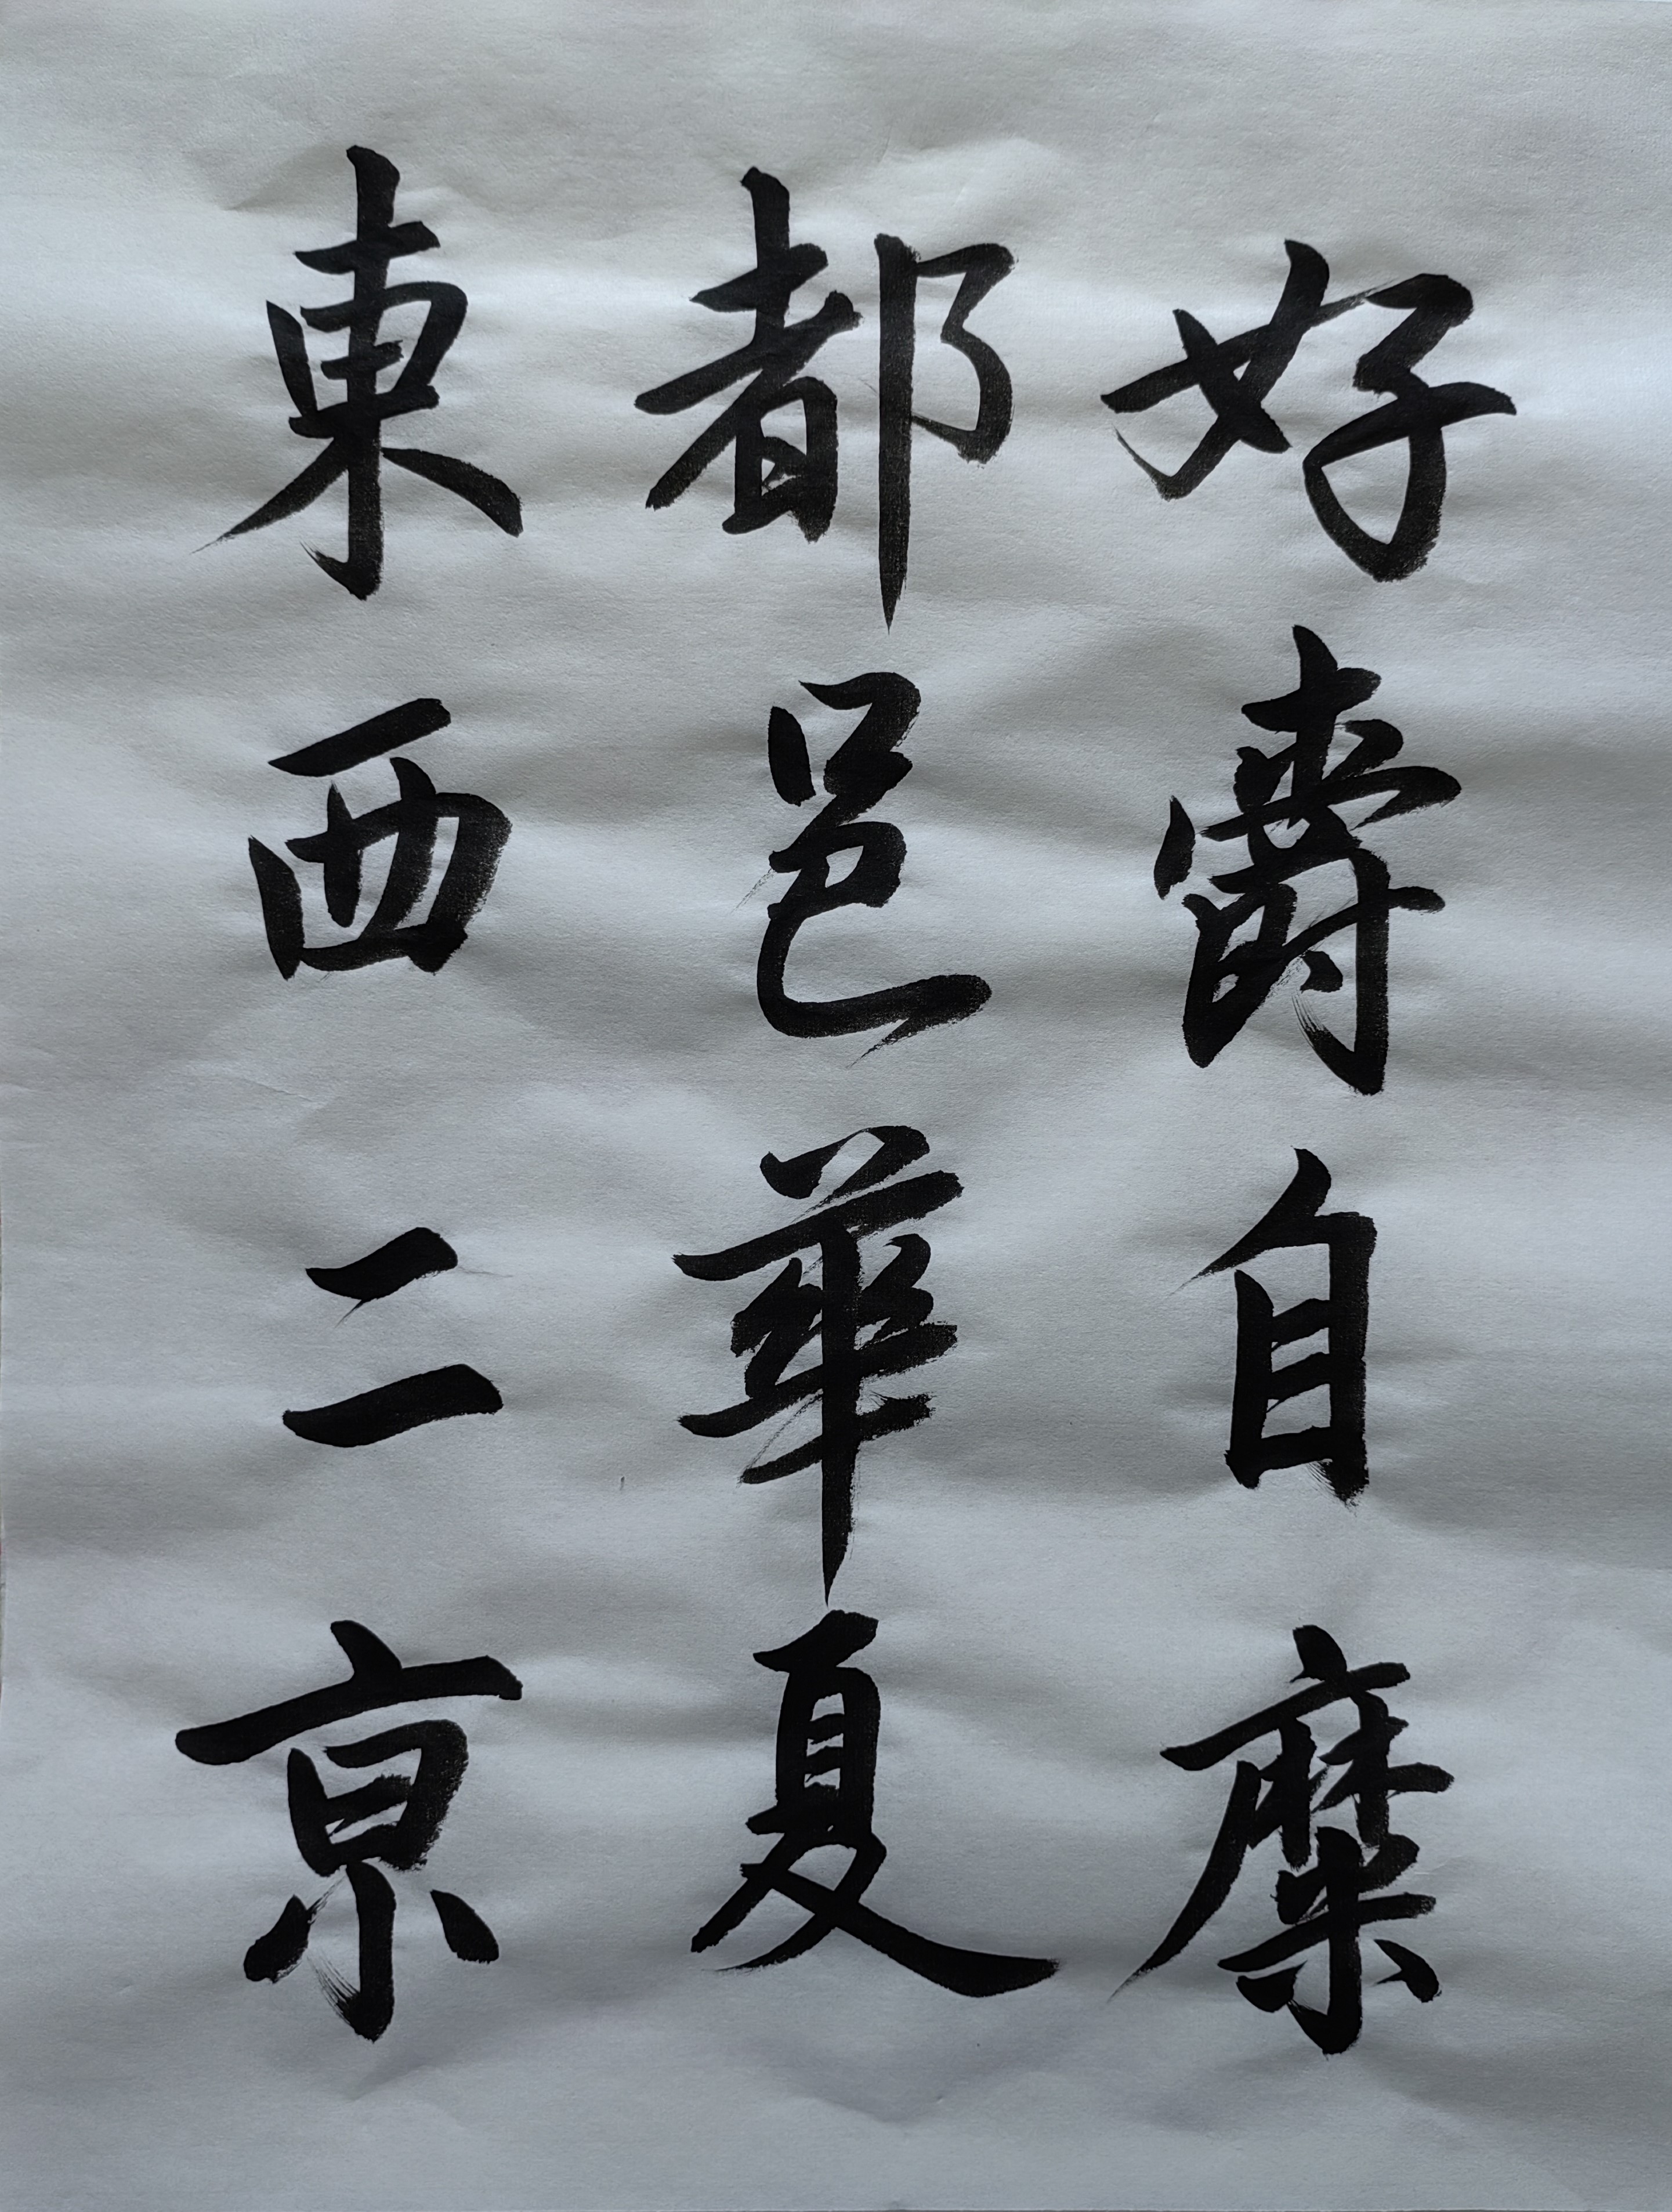 好爵自縻
都邑華夏
東西二京